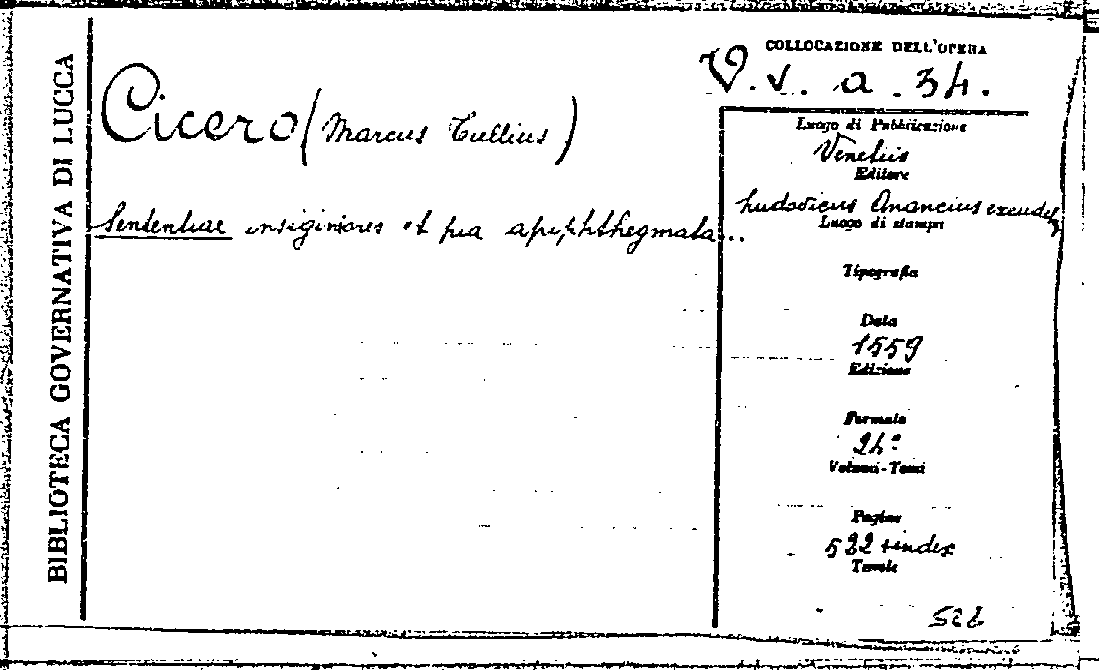 BIBLIOTECA GOVERNATIVA DI LUCCA
Cicero (Marcus Tullius)
Sententiae insigniores et pia apophthegmata...
COLLOCAZIONE DELL'OPERA
V. v. a. 34.
Luogo di Pubblicazione
Venetiis
Editore
Ludovicus Anancius excudeb
Luogo di stampa
Tipografia
Data
1559
Edizione
Formato
24º
Volumi-Tomi
Pagine
522 + index
Tavole
522